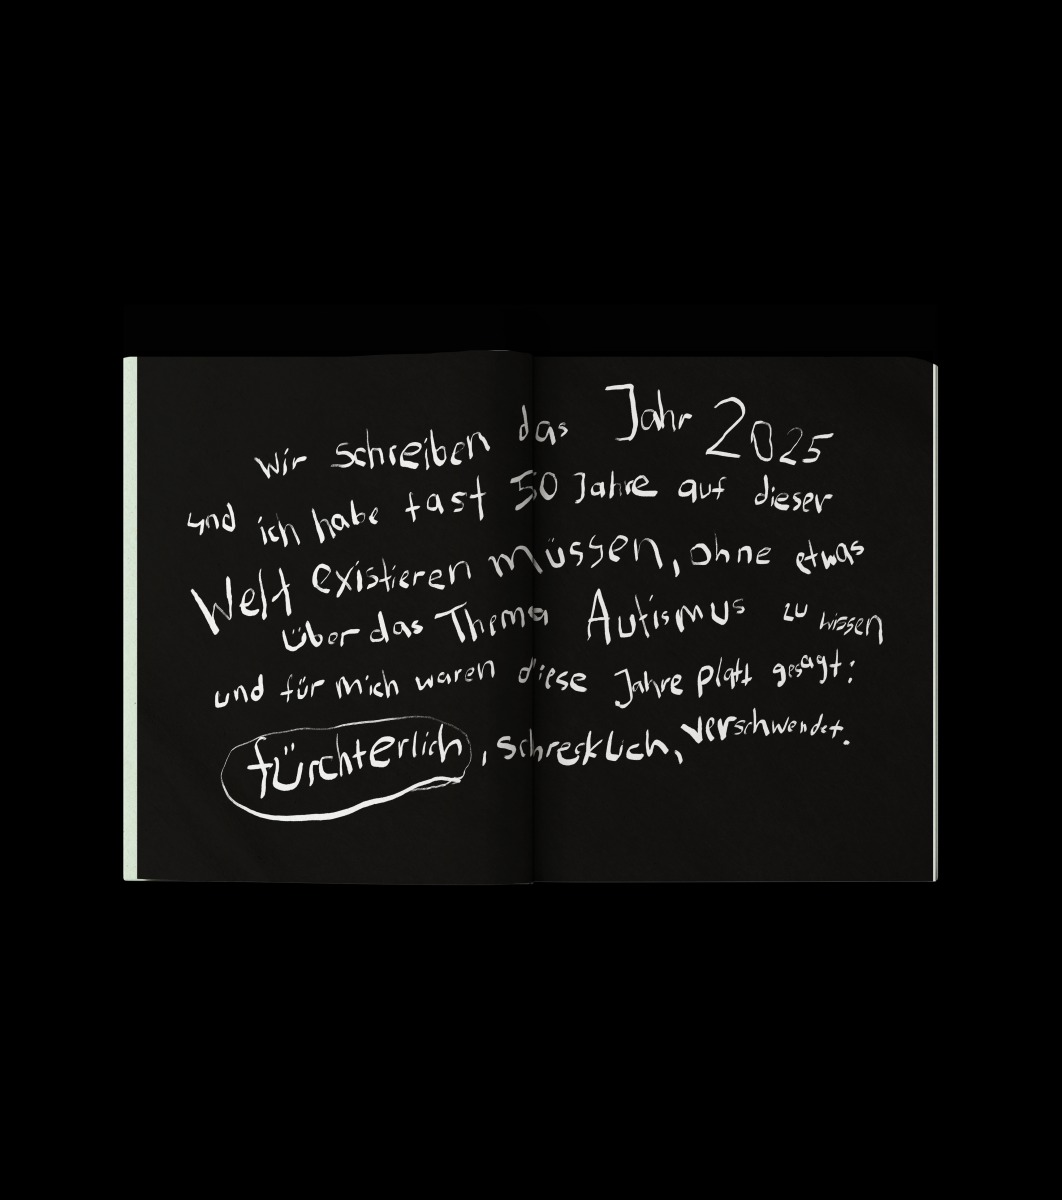 wir schreiben das Jahr 2025
und ich habe fast 50 Jahre auf dieser
Welt existieren müssen, ohne etwas
über das Thema Autismus zu wissen
und für mich waren diese Jahre platt gesagt:
fürchterlich, schrecklich, verschwendet.